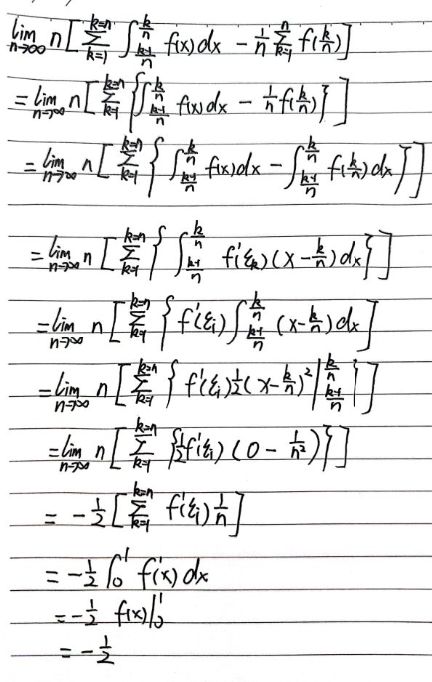 lim n→∞ n[∑_{k=1}^{k=n} ∫_{k-1/n}^{k/n} f(x)dx - 1/n ∑_{k=1}^{n} f(k/n)]
= lim n→∞ n[∑_{k=1}^{k=n} {∫_{k-1/n}^{k/n} f(x)dx - 1/n f(k/n)}]
= lim n→∞ n[∑_{k=1}^{k=n} {∫_{k-1/n}^{k/n} f(x)dx - ∫_{k-1/n}^{k/n} f(k/n)dx}]
= lim n→∞ n[∑_{k=1}^{k=n} {∫_{k-1/n}^{k/n} f'(ξ_k)(x - k/n)dx}]
= lim n→∞ n[∑_{k=1}^{k=n} {f'(ξ_i)∫_{k-1/n}^{k/n} (x - k/n)dx]
= lim n→∞ n[∑_{k=1}^{k=n} {f'(ξ_i) 1/2 (x - k/n)² |_{k-1/n}^{k/n}}]
= lim n→∞ n[∑_{k=1}^{k=n} {1/2 f'(ξ_i)(0 - 1/n²)}]
= -1/2 [∑_{k=1}^{k=n} f'(ξ_i) 1/n]
= -1/2 ∫_0^1 f'(x)dx
= -1/2 f(x)|_0^1
= -1/2